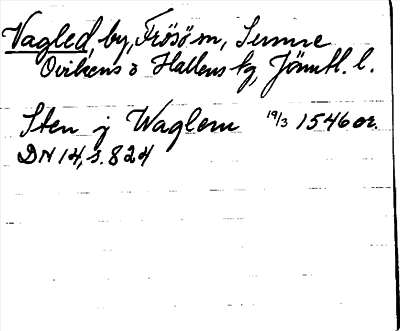 Vagled, by, Frösö sn, Sunne
Ovikens o Hallens tg, Jämtl. l.
Sten j Waglem 19/3 1546 or.
DN 14, s. 824